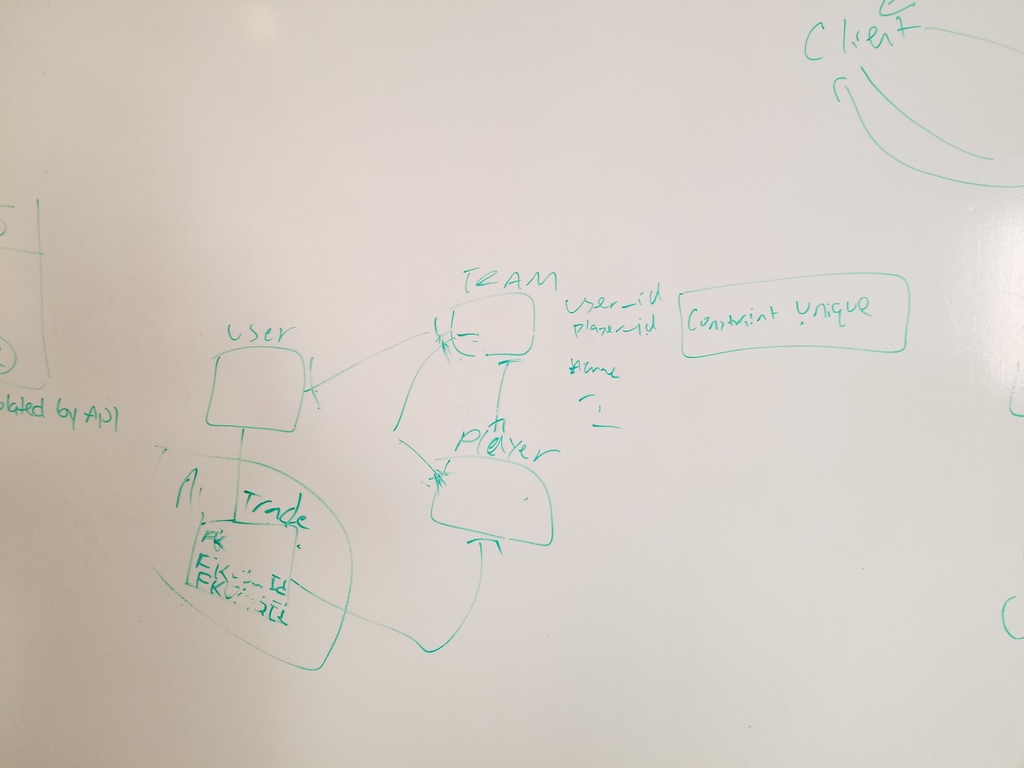 Client
TEAM
user_id
player_id
Constraint Unique
name
User
by API
Player
Trade
PK
FK
Id
FK